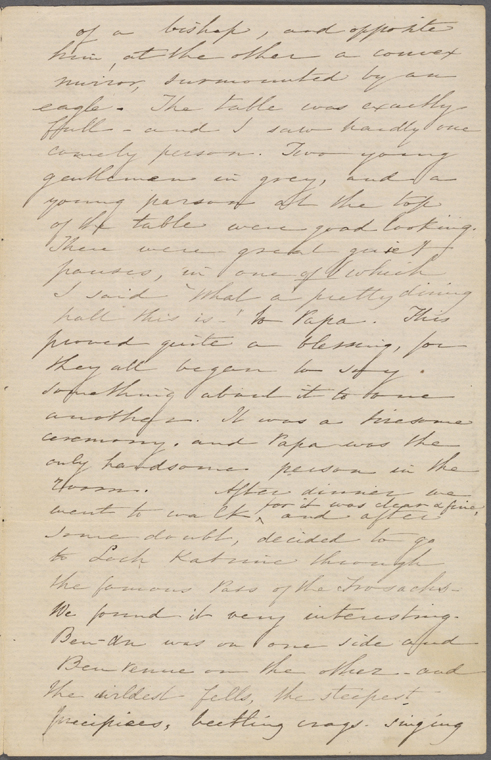 of a bishop, and opposite
him, at the other a convex
mirror, surmounted by an
eagle. The table was exactly
full - and I saw hardly one
comely person. Two young
gentlemen in grey, and a
young parson at the top
of the table were good looking.
There were great quiet
pauses, in one of which
I said "What a pretty dining
hall this is" to Papa. This
proved quite a blessing, for
they all began to say
something about it to one
another. It was a tiresome
ceremony, and Papa was the
only handsome person in the
room. After dinner we
went to walk ^ for it was clear & fine and after
some doubt, decided to go
to Loch Katrine through
the famous Pass of the Trosachs -
We found it very interesting.
Ben-An was on one side and
Ben Venue on the other - and
the wildest fells, the steepest
precipices, beetling crags - singing